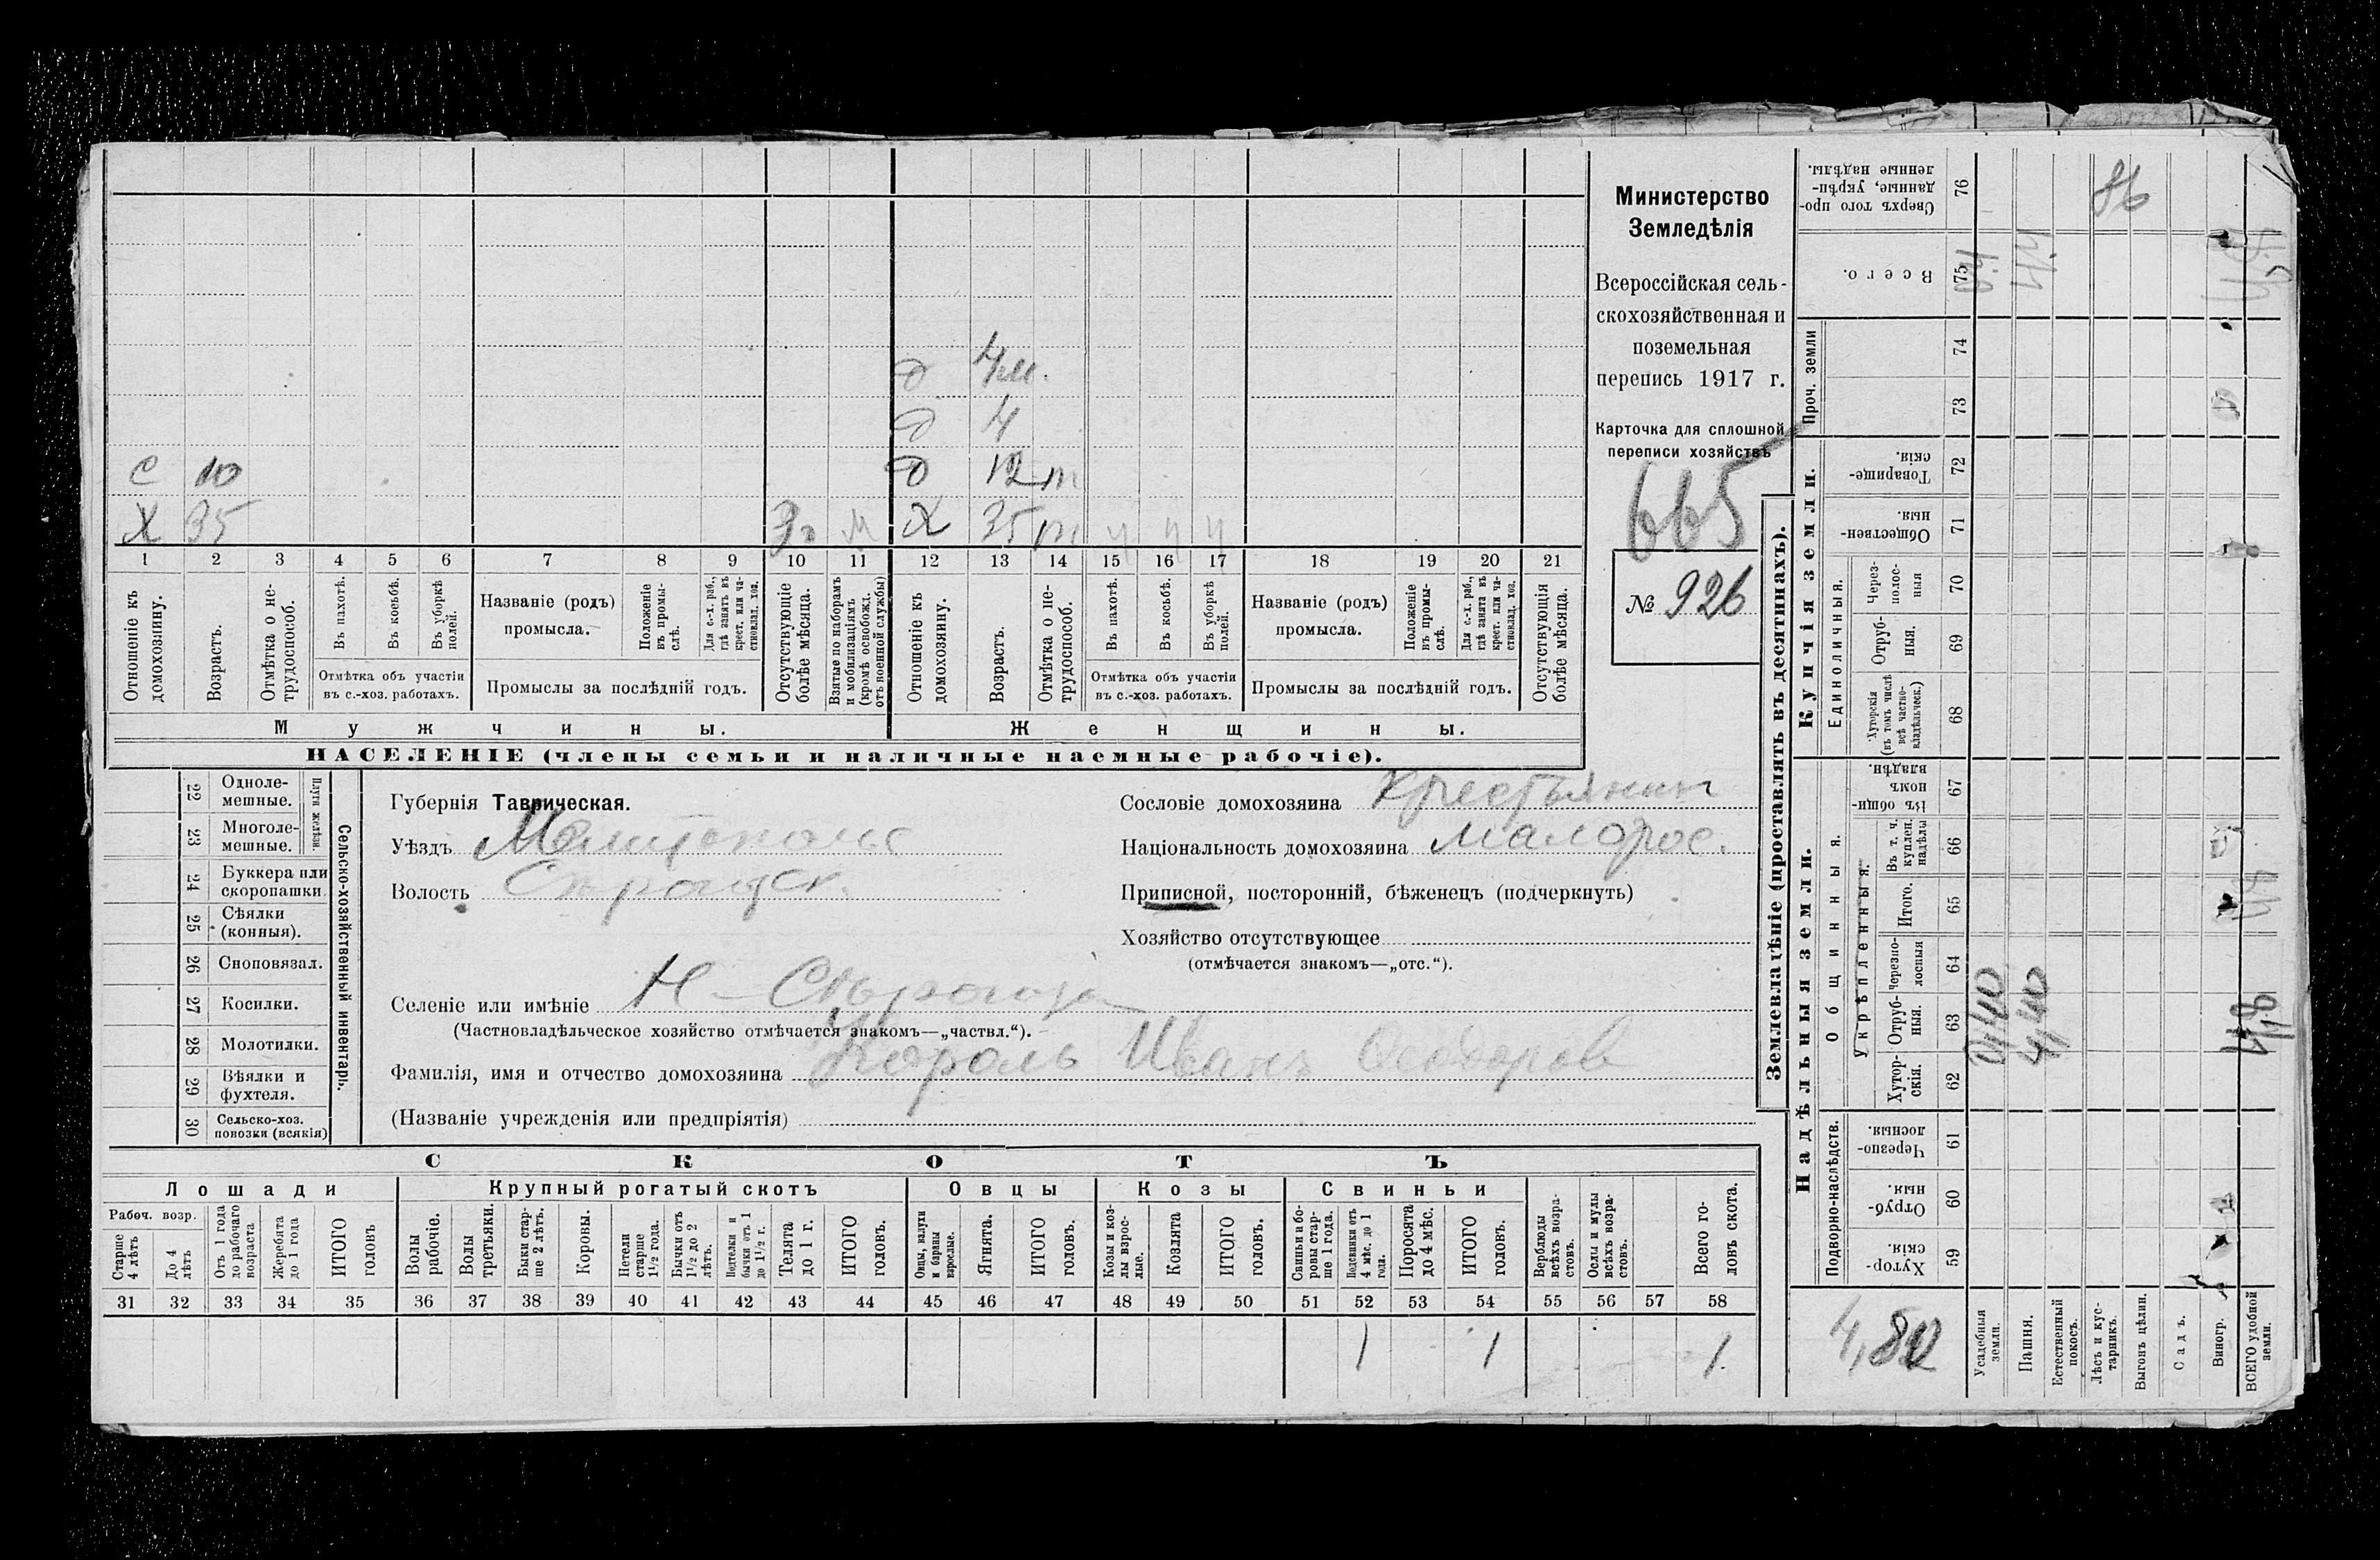 Министерство
Земледѣлія
Всероссійская сель-
скохозяйственная и
поземельная
перепись 1917 г.
Карточка для сплошной
переписи хозяйствъ
665
№ 926
д 4 м.
д 4
С 10 д 12 п
Х 35 М Х 35 п ч ч ч
1 2 3 4 5 6 7 8 9 10 11 12 13 14 15 16 17 18 19 20 21
Отношеніе къ домохозяину.
Возрастъ.
Отмѣтка о не-трудоспособ.
Въ пахотѣ.
Въ косьбѣ.
Въ уборкѣ полей.
Отмѣтка объ участіи
въ с.-хоз. работахъ.
Названіе (родъ)
промысла.
Положеніе въ промы-слѣ.
Для с.-х. раб., гдѣ занятъ въ крест. или ча-стновлад. хоз.
Промыслы за послѣдній годъ.
Отсутствующіе болѣе мѣсяца.
Взятые по наборамъ и мобилизаціямъ (кромѣ освобожд. отъ военной службы)
Отношеніе къ домохозяину.
Возрастъ.
Отмѣтка о не-трудоспособ.
Въ пахотѣ.
Въ косьбѣ.
Въ уборкѣ полей.
Отмѣтка объ участіи
въ с.-хоз. работахъ.
Названіе (родъ)
промысла.
Положеніе въ промы-слѣ.
Для с.-х. раб., гдѣ занята въ крест. или ча-стновлад. хоз.
Промыслы за послѣдній годъ.
Отсутствующія болѣе мѣсяца.
Мужчины.
Женщины.
НАСЕЛЕНІЕ (члены семьи и наличные наемные рабочіе).
Сельско-хозяйственный инвентарь.
Плуги желѣзн.
22 Одноле-мешные.
23 Многоле-мешные.
24 Буккера или скоропашки.
25 Сѣялки (конныя).
26 Сноповязал.
27 Косилки.
28 Молотилки.
29 Вѣялки и фухтеля.
30 Сельско-хоз. повозки (всякія)
Губернія Таврическая.
Уѣздъ Мелитопольс
Волость
Сословіе домохозяина Крестьянин
Національность домохозяина малорос.
Приписной, посторонній, бѣженецъ (подчеркнуть)
Хозяйство отсутствующее
(отмѣчается знакомъ—„отс.“).
Селеніе или имѣніе Н-
(Частновладѣльческое хозяйство отмѣчается знакомъ—„частвл.“).
Фамилія, имя и отчество домохозяина Король Иванъ Феодоров
(Названіе учрежденія или предпріятія)
СКОТЪ
Лошади
Крупный рогатый скотъ
Овцы
Козы
Свиньи
Рабоч. возр.
Старше 4 лѣтъ
До 4 лѣтъ
Отъ 1 года до рабочаго возраста
Жеребята до 1 года
ИТОГО головъ
Волы рабочіе.
Волы третьяки.
Быки стар-ше 2 лѣтъ.
Коровы.
Нетели старше 1½ года.
Бычки отъ 1½ до 2 лѣтъ.
Подтелки и бычки отъ 1 до 1½ г.
Телята до 1 г.
ИТОГО головъ.
Овцы, валухи и бараны взрослые.
Ягнята.
ИТОГО головъ.
Козы и коз-лы взрос-лые.
Козлята
ИТОГО головъ.
Свиньи и бо-ровы стар-ше 1 года.
Подсвинки отъ 4 мѣс. до 1 года.
Поросята до 4 мѣс.
ИТОГО головъ.
Верблюды всѣхъ возра-стовъ.
Ослы и мулы всѣхъ возра-стовъ.
Всего го-ловъ скота.
31 32 33 34 35 36 37 38 39 40 41 42 43 44 45 46 47 48 49 50 51 52 53 54 55 56 57 58
1 1 1.
Землевладѣніе (проставлять въ десятинахъ).
Надѣльныя земли.
Купчія земли.
Проч. земли
Подворно-наслѣдств.
Общинныя.
Укрѣпленныя.
Единоличныя.
Хутор-скія. 59
Отруб-ныя. 60
Черезпо-лосныя. 61
Хутор-скія. 62
Отруб-ныя. 63
черезпо-лосныя 64
Итого. 65
Въ т. ч. куплен. надѣлы 66
Въ общи-номъ владѣн. 67
Хуторскія (въ томъ числѣ всѣ частно-владѣльческ.) 68
Отруб-ныя. 69
Через-полос-ныя 70
Обществен-ныя. 71
Товарище-скія. 72
73
74
Всего. 75
Сверхъ того про-данные, укрѣп-ленные надѣлы. 76
Усадебныя земли.
Пашня.
Естественный покосъ.
Лѣсъ и кус-тарникъ.
Выгонъ цѣлин.
Садъ.
Виногр.
ВСЕГО удобной земли.
0,40
4,40